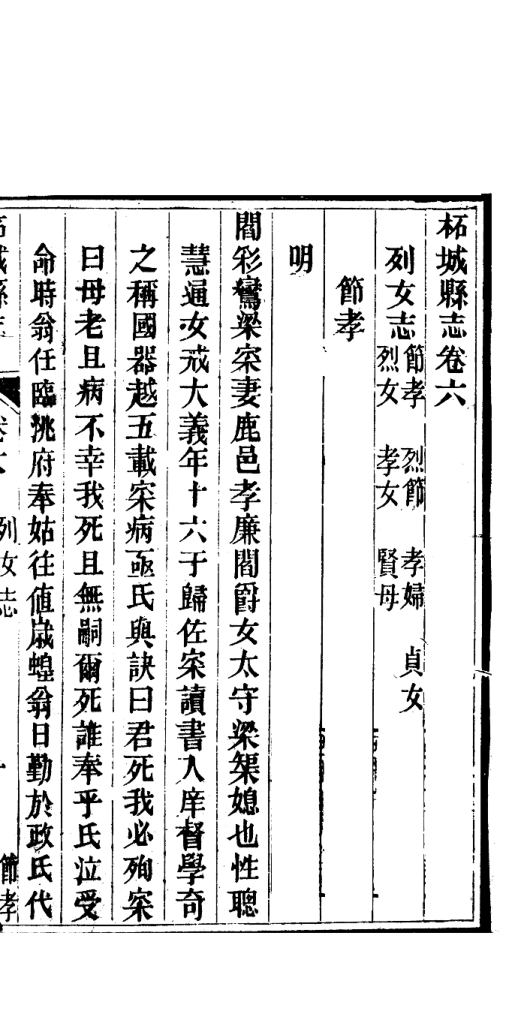 柘城縣志卷六
列女志 節孝 烈節 孝婦 貞女
烈女 孝女 賢母
節孝
明
閻彩鸞梁寀妻鹿邑孝廉閻爵女太守梁榘媳也性聰
慧通女戒大義年十六于歸佐寀讀書入庠督學奇
之稱國器越五載寀病亟氏與訣曰君死我必殉寀
曰母老且病不幸我死且無嗣爾死誰奉乎氏泣受
命時翁任臨洮府奉姑往值歲蝗翁日勤於政氏代
列女志
節孝